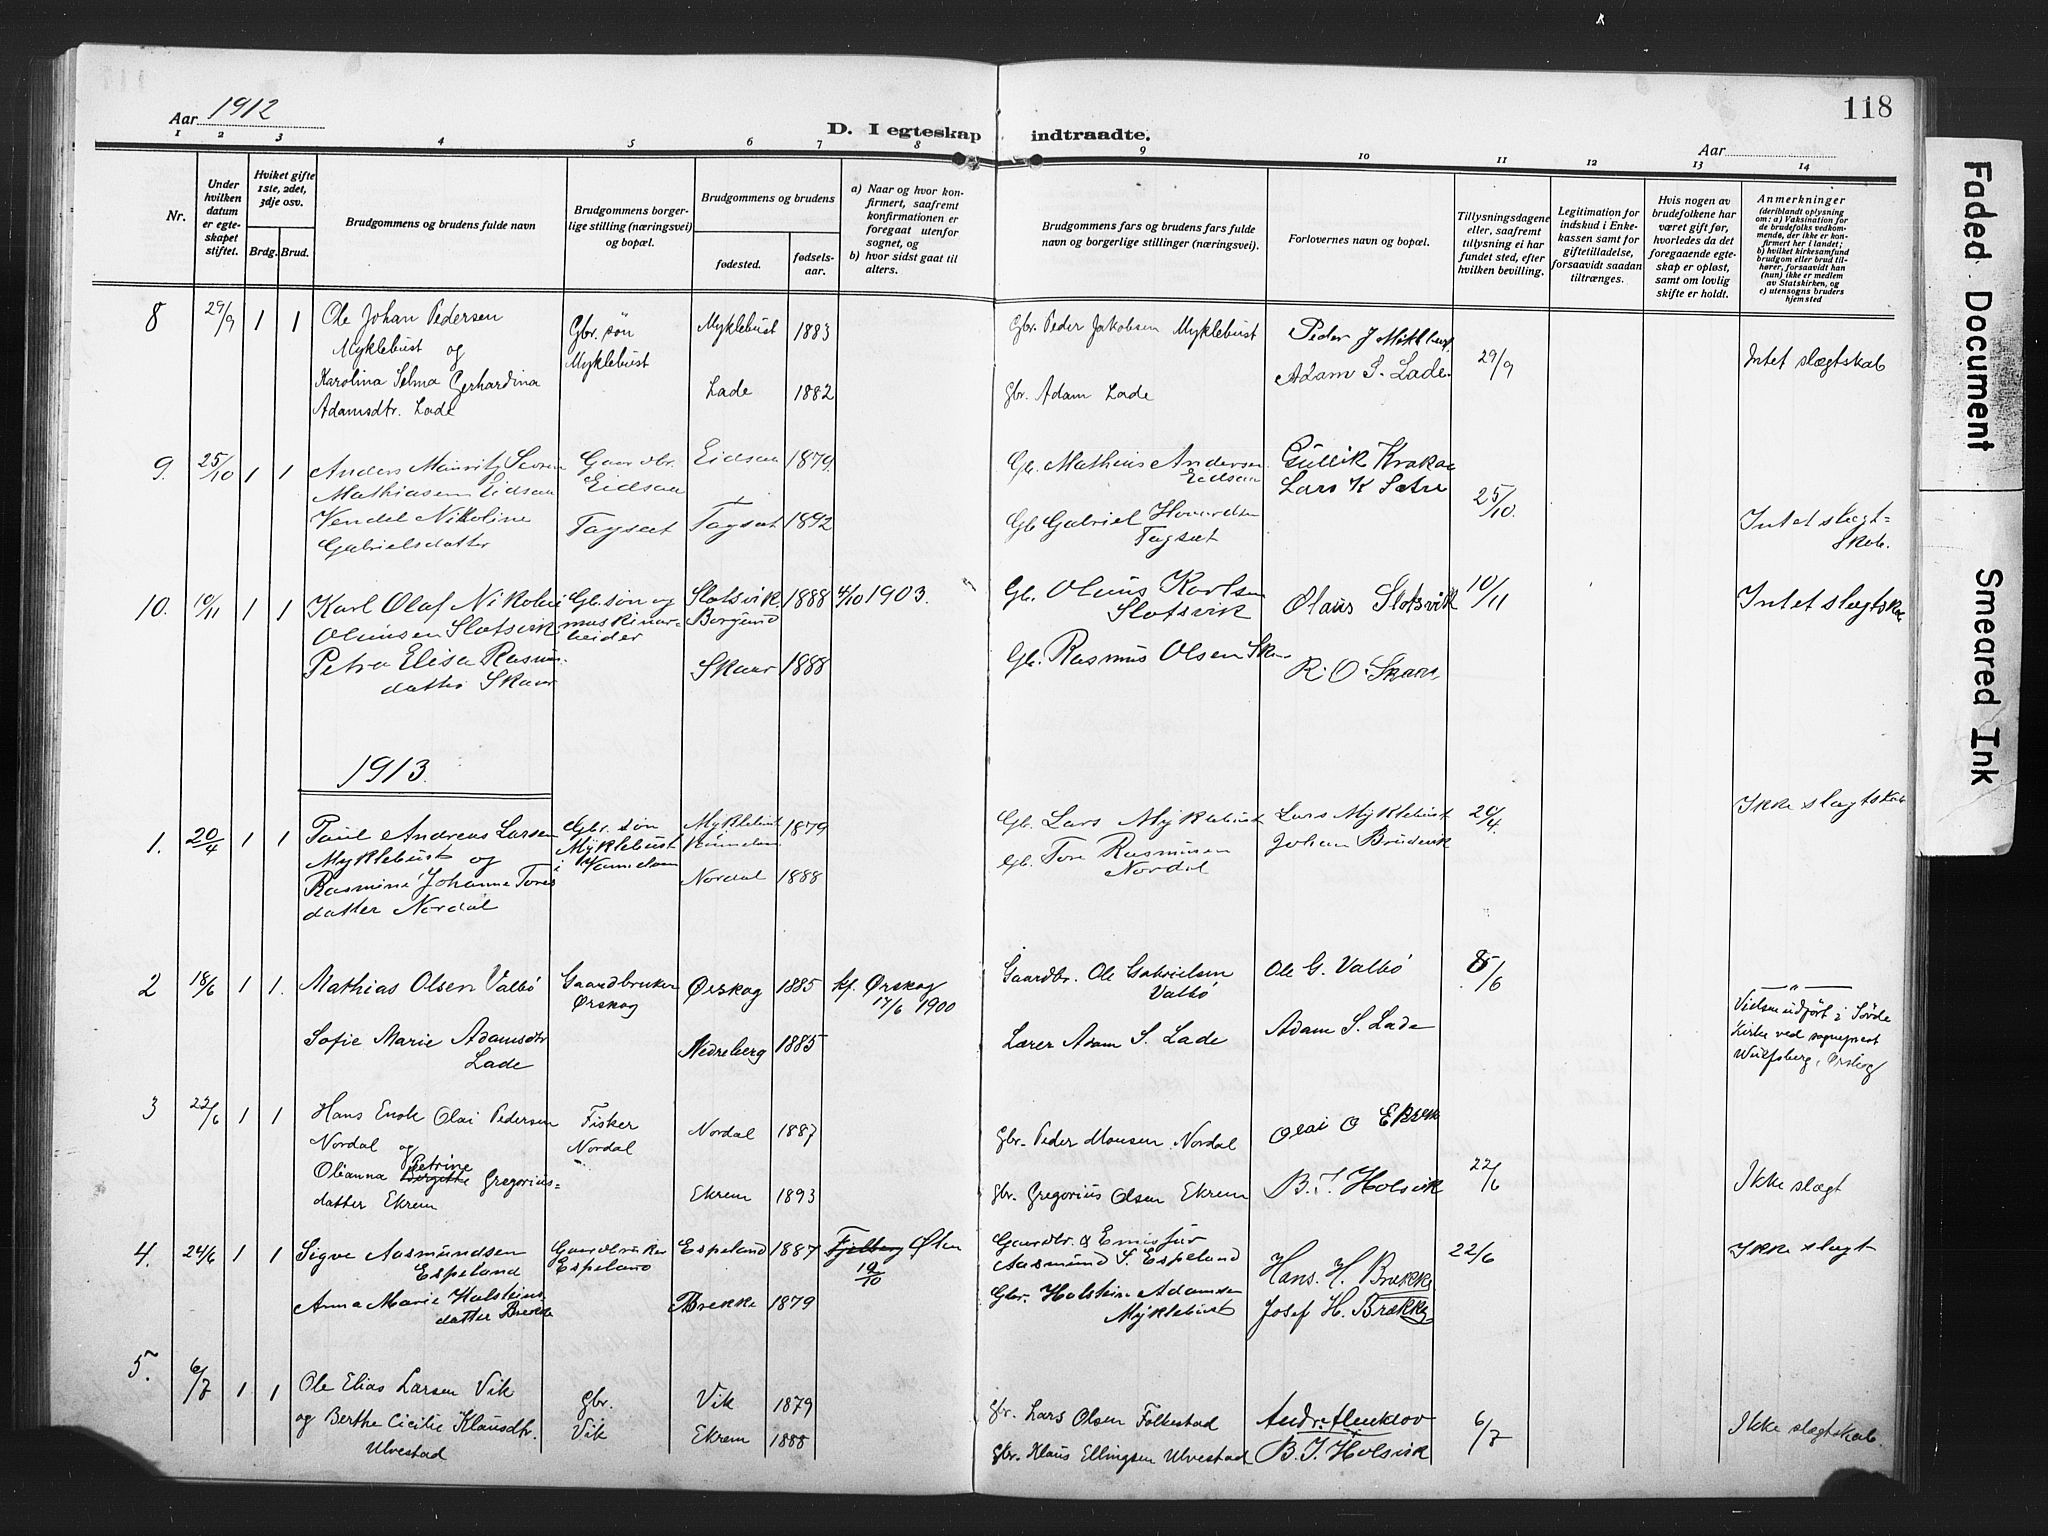 118
Aar 1912
D. I egteskap indtraadte.
Aar
1 2 3 4 5 6 7 8 9 10 11 12 13 14
Nr.
Under hvilken datum er egteskapet stiftet.
Hviket gifte 1ste, 2det, 3dje osv.
Brdg. Brud.
Brudgommens og brudens fulde navn
Brudgommens borgerlige stilling (næringsvei) og bopæl.
Brudgommens og brudens
fødested.
fødselsaar.
a) Naar og hvor konfirmert, saafremt konfirmationen er foregaat utenfor sognet, og
b) hvor sidst gaat til alters.
Brudgommens fars og brudens fars fulde navn og borgerlige stillinger (næringsvei).
Forlovernes navn og bopæl.
Tillysningsdagene eller, saafremt tillysning ei har fundet sted, efter hvilken bevilling.
Legitimation for indskud i Enkekassen samt for giftetilladelse, forsaavidt saadan tiltrænges.
Hvis nogen av brudefolkene har været gift før, hvorledes da det foregaaende egteskap er opløst, samt om lovlig skifte er holdt.
Anmerkninger
(deriblandt oplysning om: a) Vaksination for de brudefolks vedkommende, der ikke er konfirmert her i landet; b) hvilket kirkesamfund brudgom eller brud tilhører, forsaavidt han (hun) ikke er medlem av Statskirken, og c) utensogns bruders hjemsted
8 29/9 1 1 Ole Johan Pedersen Gbr. søn Myklebust 1883 Gbr. Peder Jakobsen Myklebust Peder J
Myklebust og Myklebust 29/9 Intet slægtskab
Karolina Selma Gerhardina Lade 1882 Gbr. Adam Lade Adam S. Lade
Adamsdtr. Lade
9. 25/10 1 1 Anders Gaardbr. Eidsaa 1879 Gb. Mathias Andersen Gullik
Mathiasen Eidsaa Eidsaa Eidsaa Lars K Sætre 25/10
Vendel Nikoline Tagsæt Tagsæt 1892 Gb Gabriel Tagsæt Intet slægtskab.
Gabrielsdatter
10. 10/11 1 1 Karl Olaf Nikolai Gb. søn og Slotsvik 1888 4/10 1903. Gb. Olinus Karlsen Olaus Slotsvik 10/11 Intet slægtska
Olinusen Slotsvik maskinarbeider Borgund Slotsvik
Petra Elisa Rasmusdatter Skaar Skaar 1888 Gb. Rasmus Olsen R. O. Skaar
1913.
1. 20/4 1 1 Paul Andreas Larsen Gbr. søn Myklebust 1879 Gb. Lars Myklebust Lars Myklebust 20/4. Ikke slægtskab
Myklebust og Myklebust i Vanndam
Rasmine Johanne Tores Nordal 1888 Gb. Tore Rasmusen Nordal Johan
datter Nordal
2 18/6 1 1. Mathias Olsen Valbö Gaardbruker Ørskog Ørskog 1885 kf. Ørskog 17/6 1900 Gaardbr. Ole Gabrielsen Valbö Ole G. Valbö 8/6 — " —
Sofie Marie Adamsdtr Lade Nedreberg 1885 Lærer Adam S. Lade Adam S. Lade Vielsen udført i Søvde Kirke ved sogneprest Wulfsberg, Ørskog
3 22/6 1 1 Hans Enok Olai Pedersen Fisker Nordal 1887 Gbr. Peder Monsen Nordal Olai O Ekrem
Nordal og Nordal 22/6 Ikke slægt
Olianna Petrine Gregorius= Ekrem 1893 Gbr. Gregorius Olsen Ekrem B. J. Holsvik
datter Ekrem
4. 24/6 1 1 Sigve Aasmundsen Gaardbruker Espeland 1887 Fjelberg Ølen Gaardbr. & Emissær 22/6 Ikke slægt
Espeland Espeland 12/10 Aasmund S. Espeland Hans. H. Brække
Anna Marie Holsteins- Brekke 1879 Gbr. Holstein Adamsen Myklebust Josef H. Brække
datter Brekke
5. 6/7 1 1 Ole Elias Larsen Vik Gbr. Vik Vik 1879 Gbr. Lars Olsen Folkestad 6/7 Ikke slægtskab.
og Berthe Cicilie Klausdtr. Ekrem 1888 Gbr. Klaus Ellingsen Ulvestad B. J. Holsvik
Ulvestad
Faded Document
Smeared Ink